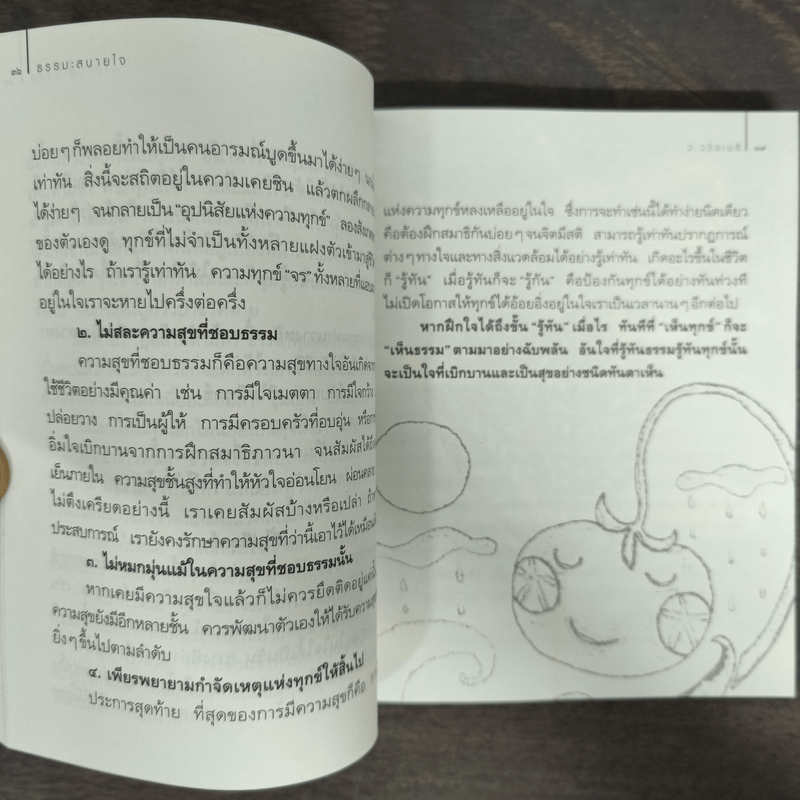 ๓๖ ธรรมะสบายใจ
บ่อยๆ ก็พลอยทำให้เป็นคนอารมณ์บูดขึ้นมาได้ง่ายๆ
เท่าทัน สิ่งนี้จะสถิตอยู่ในความเคยชิน แล้วตกผลึก
ได้ง่ายๆ จนกลายเป็น “อุปนิสัยแห่งความทุกข์” ลอง
ของตัวเองดู ทุกข์ที่ไม่จำเป็นทั้งหลายแฝงตัวเข้ามา
ได้อย่างไร ถ้าเรารู้เท่าทัน ความทุกข์ “จร” ทั้งหลายที่
อยู่ในใจเราจะหายไปครึ่งต่อครึ่ง
๒. ไม่สละความสุขที่ชอบธรรม
ความสุขที่ชอบธรรมก็คือความสุขทางใจอันเกิด
ใช้ชีวิตอย่างมีคุณค่า เช่น การมีใจเมตตา การมีใจกว้าง
ปล่อยวาง การเป็นผู้ให้ การมีครอบครัวที่อบอุ่น
อิ่มใจเบิกบานจากการฝึกสมาธิภาวนา จนสัมผัสได้
เย็นภายใน ความสุขชั้นสูงที่ทำให้หัวใจอ่อนโยน ผ่อนคลาย
ไม่ตึงเครียดอย่างนี้ เราเคยสัมผัสบ้างหรือเปล่า
ประสบการณ์ เรายังคงรักษาความสุขที่ว่านี้เอาไว้ได้
๓. ไม่หมกมุ่นแม้ในความสุขที่ชอบธรรมนั้น
หากเคยมีความสุขใจแล้วก็ไม่ควรยึดติดอยู่
ความสุขยังมีอีกหลายชั้น ควรพัฒนาตัวเองให้ได้รับ
ยิ่งๆ ขึ้นไปตามลำดับ
๔. เพียรพยายามกำจัดเหตุแห่งทุกข์ให้สิ้นไป
ประการสุดท้าย ที่สุดของการมีความสุขก็คือ
ว.วชิรเมธี ๓๗
แห่งความทุกข์หลงเหลืออยู่ในใจ ซึ่งการจะทำเช่นนี้ได้ทำง่ายนิดเดียว
คือต้องฝึกสมาธิกันบ่อยๆ จนจิตมีสติ สามารถรู้เท่าทันปรากฏการณ์
ต่างๆ ทางใจและทางสิ่งแวดล้อมได้อย่างรู้เท่าทัน เกิดอะไรขึ้นในชีวิต
ก็ “รู้ทัน” เมื่อรู้ทันก็จะ “รู้กัน” คือป้องกันทุกข์ได้อย่างทันท่วงที
ไม่เปิดโอกาสให้ทุกข์ได้อ้อยอิ่งอยู่ในใจเราเป็นเวลานานๆ อีกต่อไป
หากฝึกใจได้ถึงขั้น “รู้ทัน” เมื่อไร ทันทีที่ “เห็นทุกข์” ก็จะ
“เห็นธรรม” ตามมาอย่างฉับพลัน อันใจที่รู้ทันธรรมรู้ทันทุกข์นั้น
จะเป็นใจที่เบิกบานและเป็นสุขอย่างชนิดทันตาเห็น